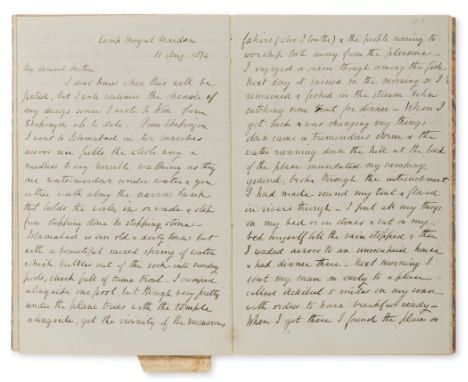 Camp Mogul Maidan
11 Aug. 1874
My dearest Mother
I dont know when this will be
posted, but I will continue the chronicle of
my doings since I wrote to you from
up to date. From
I went to Islamabad in two marches
across rice fields the whole way &
needless to say horrible walking as they
are watermeadows under water & you
either walk along the narrow banks
that holds the water in or wade & step
from stepping stone to stepping stone -
Islamabad is an old & dirty town but
with a beautiful sacred spring of water
which bubbles out of the rock into sundry
pools, chock full of tame trout. I camped
alongside one pool, but though very pretty
under the plane trees with the temple
alongside, yet the vicinity of the numerous
fakirs & the people coming to
worship took away from the pleasure -
I enjoyed a swim though among the fish
next day it rained in the morning so I
remained & fished in the stream below
catching some for dinner - When I
got back & was changing my things
down came a tremendous storm & the
water running down the hill at the back
of the place inundated my camping
ground, broke through the intrenchment
I had made round my tent & flowed
in rivers through - I put all my things
on my bed & on stones & sat on my
bed myself till the rain stopped & then
I waded across to an house
& had dinner there - next morning I
sent my man on early to a place
called 5 miles on my road
with orders to have breakfast ready -
When I got there I found the place so